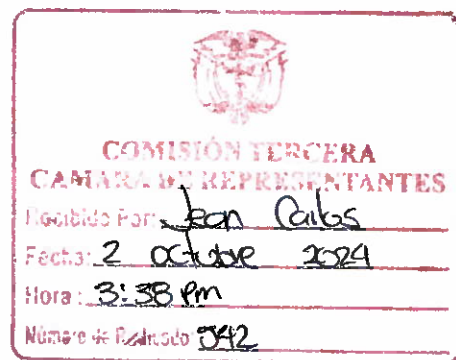 COMISIÓN TERCERA
CAMARA DE REPRESENTANTES
Recibido Por: Jean Carlos
Fecha: 2 octubre 2024
Hora: 3:38 pm
Número de Radicado: 942